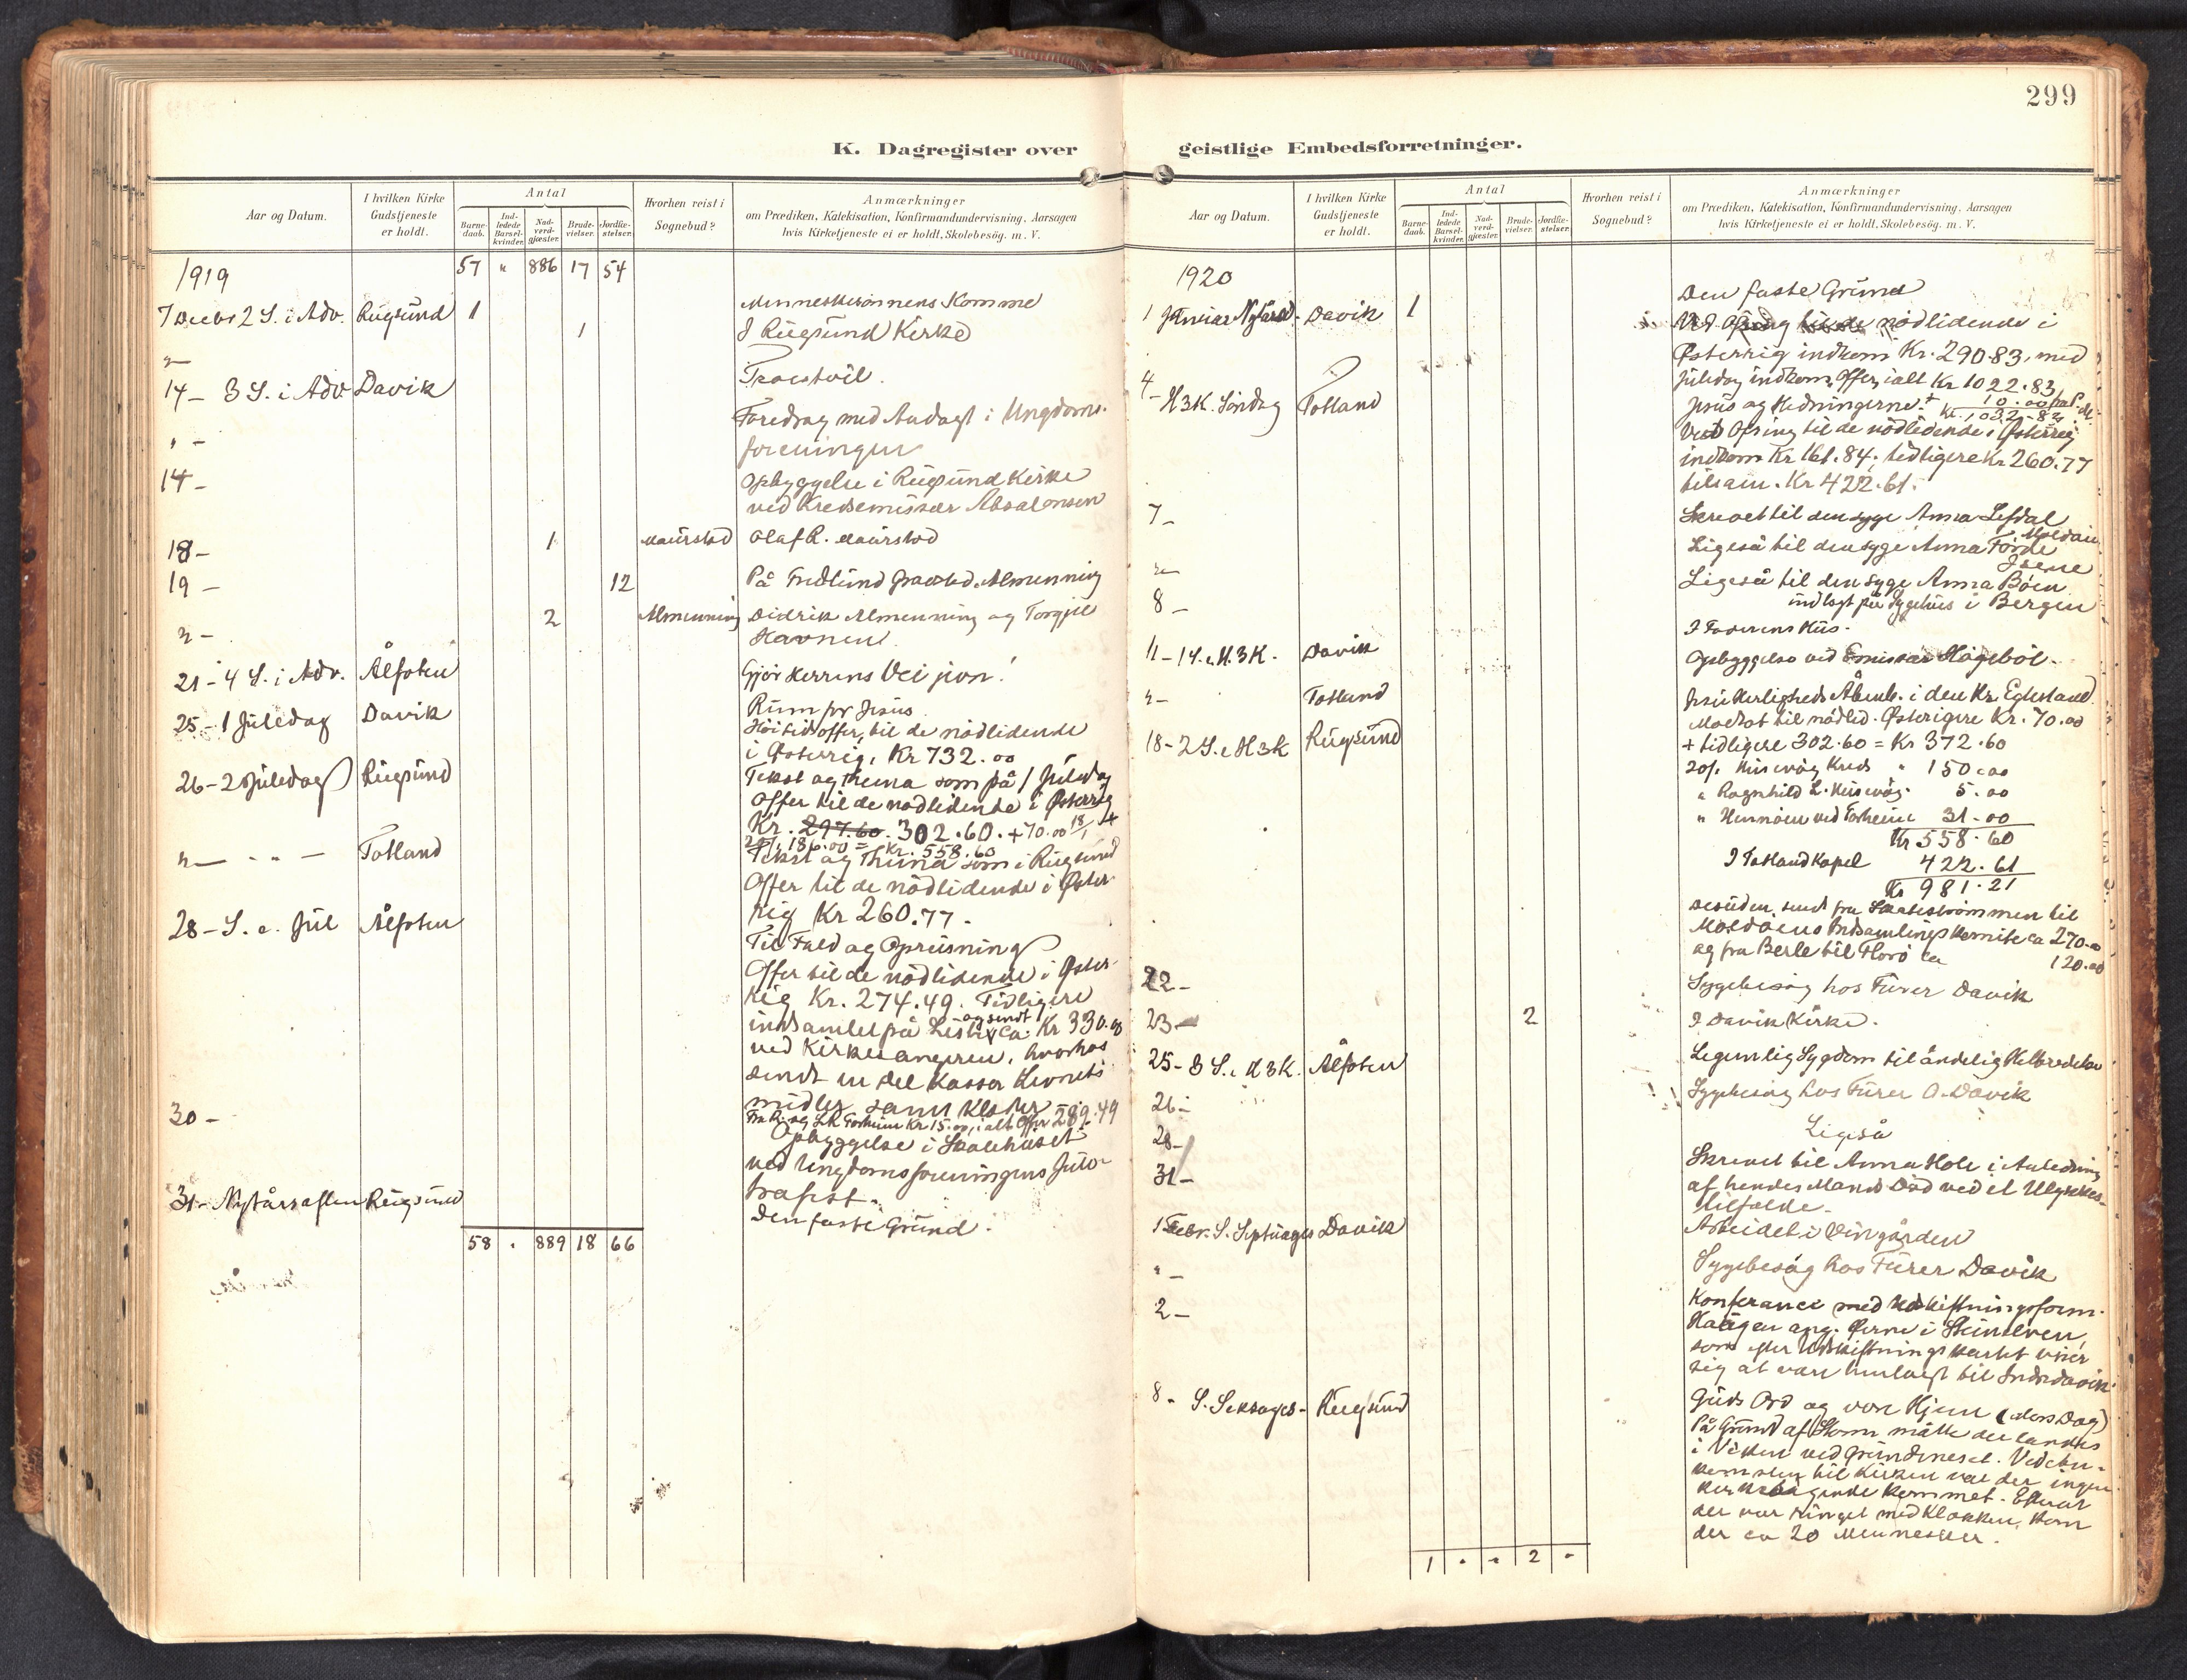 299
K. Dagregister over
geistlige Embedsforretninger.
Aar og Datum.
I hvilken Kirke
Gudstjeneste
er holdt.
Antal
Barne-
daab.
Ind-
ledede
Barsel-
kvinder.
Nad-
verd-
gjæster.
Brude-
vielser.
Jordfæ-
stelser.
Hvorhen reist i
Sognebud?
Anmærkninger
om Prædiken, Katekisation, Konfirmandundervisning. Aarsagen
hvis Kirketjeneste ei er holdt, Skolebesög. m. V.
1919 57 " 886 17 54
7 Decbr 2 S. i Adv. Rugsund 1 Menneskesönnens Komme
"— 1 I Rugsund Kirke
14- 3 S. i Adv Davik
Foredrag med Andagt i Ungdoms-
foreningen
14- Opbyggelse i Rugsund Kirke
ved Kredsemissær Absalonsen
18- 1 Maurstad Olaf R. Maurstad
19- 12 På Fredlund Gravsted. Almenning
"- 2 Almenning Didrik Almenning og Torgjil
Havnen.
21- 4 S. i Adv. Ålfoten Gjör Herrens Vei jevn!
25- 1 Juledag Davik Rum for Jesus
Höitidsoffer, til de nödlidende
i Österrig, Kr 732.00
26- 2 Juledag Rugsund Tekst og Thema som på 1 Juledag
Offer til de nödlidende i Österrig
Kr. 297.60. 302.60. + 70.00 18/1 +
20/1. 186.00 = Kr. 558.60
"— " " — Totland Tekst og Thema som i Rugsund
Offer til de nödlidende i Öster-
rig Kr 260.77.
28- S. e. Jul Ålfoten Til Fald og Opreisning
Offer til de nödlidende i Öster-
rig Kr. 274.49. Tidligere
indsamlet på Liste og sendt ca. Kr 330.00
ved Kirkesangeren, hvorhos
sendt en Del Kasser Levnets-
midler samt Klæder
Kr 15.00, ialt Offer 289.49
30- Opbyggelse i Skolehuset
ved Ungdomsforeningens Jule-
træfest.
31- Nytårsaften Rugsund Den faste Grund.
58 . 889 18 66
Aar og Datum.
I hvilken Kirke
Gudstjeneste
er holdt.
Antal
Barne-
daab.
Ind-
ledede
Barsel-
kvinder.
Nad-
verd-
gjæster.
Brude-
vielser.
Jordfæ-
stelser.
Hvorhen reist i
Sognebud?
Anmærkninger
om Prædiken, Katekisation, Konfirmandundervisning. Aarsagen
hvis Kirketjeneste ei er holdt, Skolebesög. m. V.
1920
1 Januar Nytårsd. Davik 1 Den faste Grund
Ved Ofring til de nödlidende i
Österrig indkom Kr. 290.83, med
Juledag indkom. Offer, ialt Kr 1022.83
10.00
Kr. 1032.83
4- H3K. Söndag Totland Jesus og Hedningerne.
Ved Ofring til de nödlidende i Österrig
indkom Kr 161.84, tidligere Kr 260.77
tilsam. Kr 422.61.
7- Skrevet til den syge Anna Lefdal
Ligeså til den syge Anna Förde
"— Ligeså til den syge Anna Böen
8- indlagt på Sygehus i Bergen
11- 1 S. e. H.3K. Davik I Faderens Hus.
"- Totland Opbyggelse ved Emissær Högeböl.
18- 2 S. e H3K Rugsund Jesu Herligheds Åbenb. i den Kr.
Modtat til nödlid. Österigere Kr. 70.00
+ tidligere 302.60 = Kr 372.60
20/1. Husevåg Kreds " 150.00
" Ragnhild L. Husevåg. 5.00
" 31.00
Kr 558.60
I Totland Kapel 422.61
Kr 981.21
Desuden sendt fra Skatestrømmen til
Moldöens Indsamlings Komite ca 270.00
og fra Berle til Florö ca 120.00
22- Sygebesög hos Furer Davik
23- 2 I Davik Kirke.
25- 3 S. e H3K. Ålfoten Legemlig Sygdom til åndelig Helbredelse
26- Sygebesög hos Furer O. Davik
28- Ligeså
31- Skrevet til Anna Hole i Anledning
af hendes Mands Död ved et Ulykkes-
tilfælde.
1 Febr. S. Septuages Davik Arbeidet i Vingården
"- Sygebesög hos Furer Davik
2- Konferance med Udskiftningsform.
Haugen ang. Öerne i
som efter Udskiftningskartet viser
sig at være henlagt til Indredavik.
8- S. Seksages- Rugsund Guds Ord og vore Hjem (ders Dag)
På Grund af Storm måtte der landes
i Viken ved Grundeneset. Ved An-
komsten til Kirken var der ingen
kirkesögende kommet. Efterat
der var ringet med Klokken, kom
der ca 20 Mennesker.
1 . . 2 .